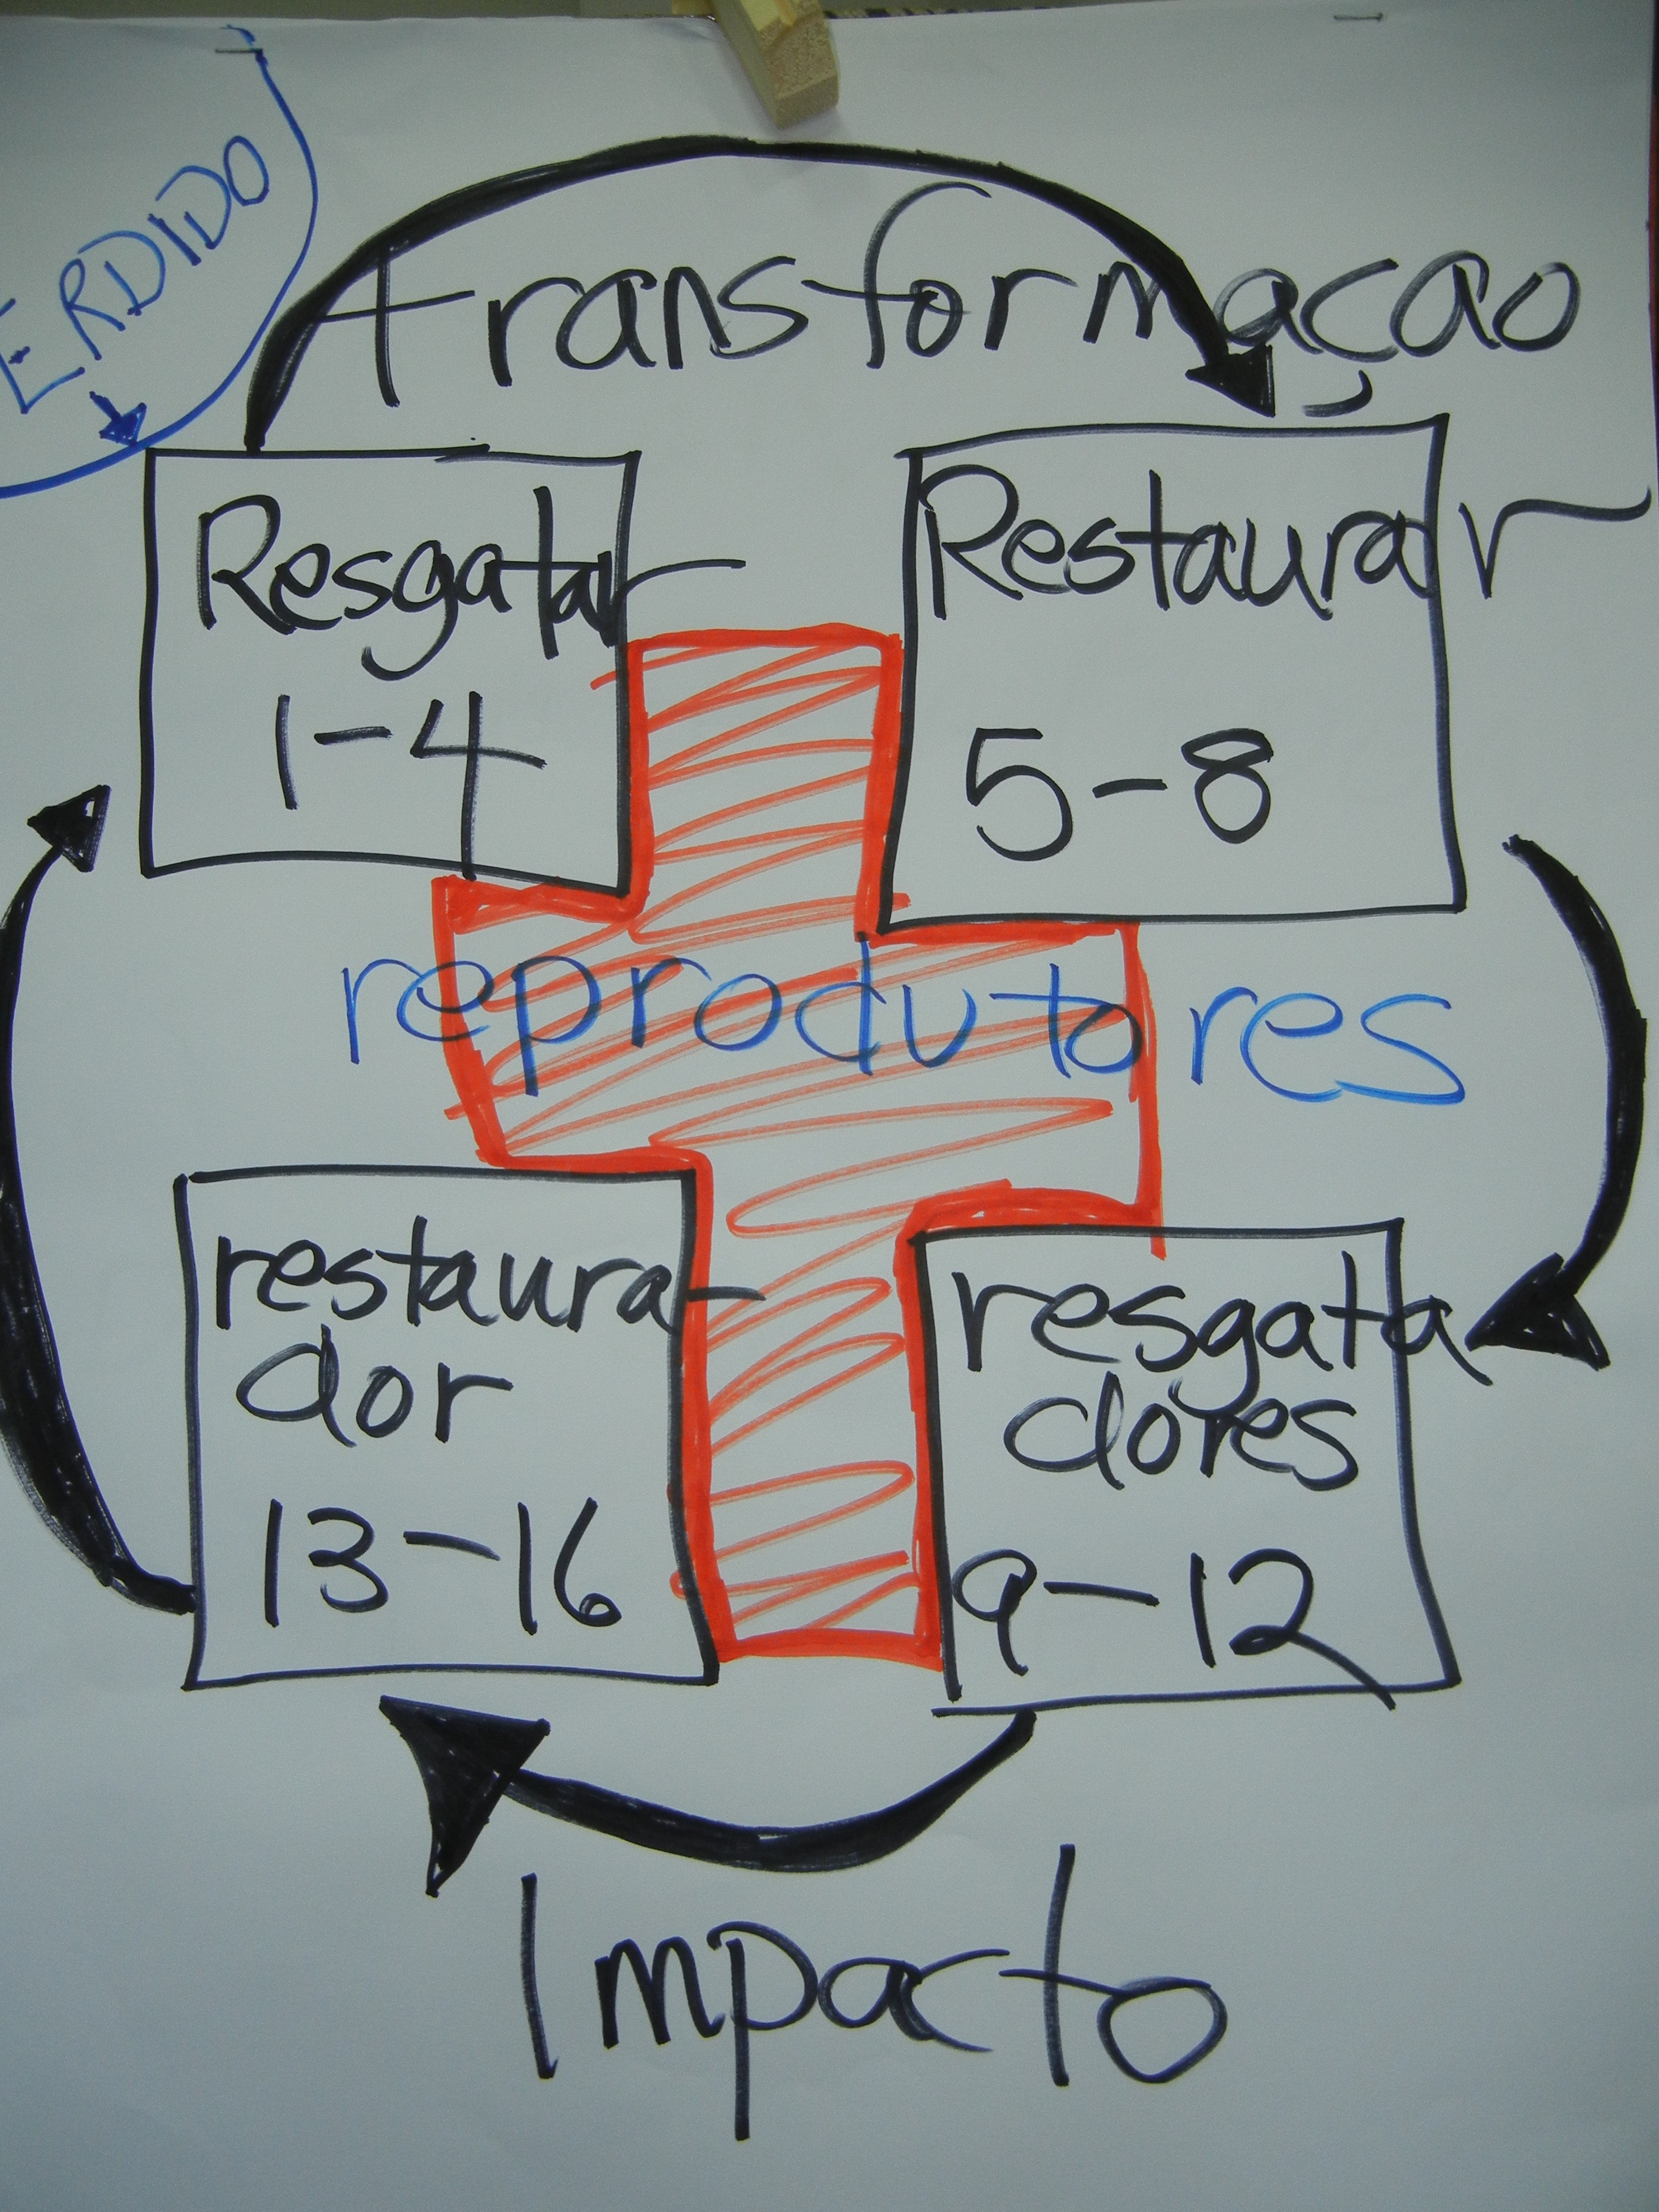 ERDIDO
transformaçao
Resgatar
1-4
Restaurar
5-8
reprodutores
restaura-
dor
13-16
resgata
dores
9-12
Impacto